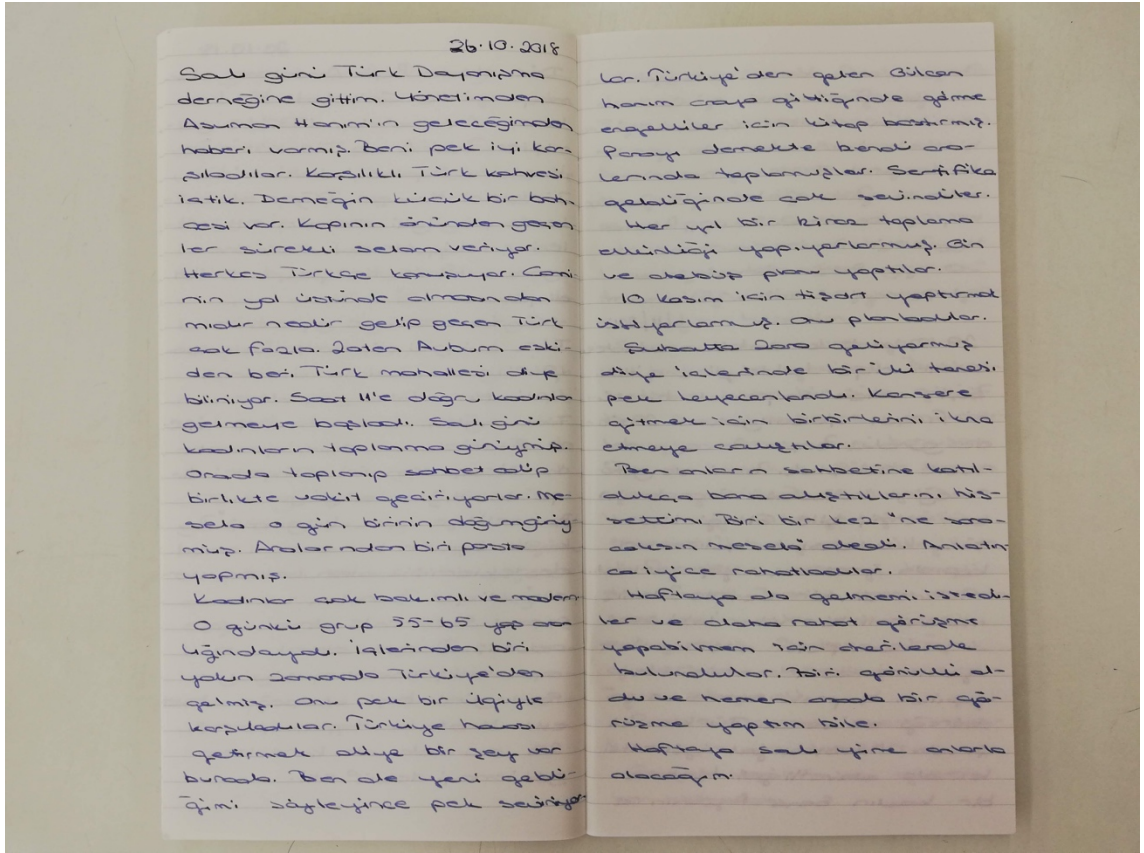 26.10.2018
Salı günü Türk Dayanışma
derneğine gittim. Yönetimden
Asuman Hanım'ın geleceğimden
haberi varmış. Beni pek iyi kar-
şıladılar. Karşılıklı Türk kahvesi
içtik. Derneğin küçük bir bah-
çesi var. Kapının önünden geçen
ler sürekli selam veriyor.
Herkes Türkçe konuşuyor. Cami-
nin yol üstünde olmasından
mıdır nedir gelip geçen Türk
çok fazla. Zaten Auburn eski-
den beri Türk mahallesi diye
biliniyor. Saat 11'e doğru kadınlar
gelmeye başladı. Salı günü
kadınların toplanma günüymüş.
Orada toplanıp sohbet edip
birlikte vakit geçiriyorlar. Me-
sela o gün birinin doğumgünüy-
müş. Aralarından biri pasta
yapmış.
Kadınlar çok bakımlı ve modern.
O günkü grup 55-65 yaş ara
lığındaydı. İçlerinden biri
yakın zamanda Türkiye'den
gelmiş. Onu pek bir ilgiyle
karşıladılar. Türkiye havası
getirmek diye bir şey var
burada. Ben de yeni geldi-
ğimi söyleyince pek seviniyor-
lar. Türkiye'den gelen Gülcan
hanım oraya gittiğinde görme
engelliler için kitap bastırmış.
Parayı dernekte kendi ara-
larında toplamışlar. Sertifika
geldiğinde çok sevindiler.
Her yıl bir kiraz toplama
etkinliği yapıyorlarmış. Gün
ve otobüs planı yaptılar.
10 Kasım için tişört yaptırmak
istiyorlarmış. Onu planladılar.
Şubatta Zara geliyormuş
diye içlerinde bir iki tanesi
pek heyecanlandı. Konsere
gitmek için birbirlerini ikna
etmeye çalıştılar.
Ben onların sohbetine katıl-
dıkça bana alıştıklarını his-
settim. Biri bir kez "ne sora-
caksın mesela" dedi. Anlatın-
ca iyice rahatladılar.
Haftaya da gelmemi istedi-
ler ve daha rahat görüşme
yapabilmem için önerilerde
bulundular. Biri gönüllü ol-
du ve hemen orada bir gö-
rüşme yaptım bile.
Haftaya salı yine onlarla
olacağım.